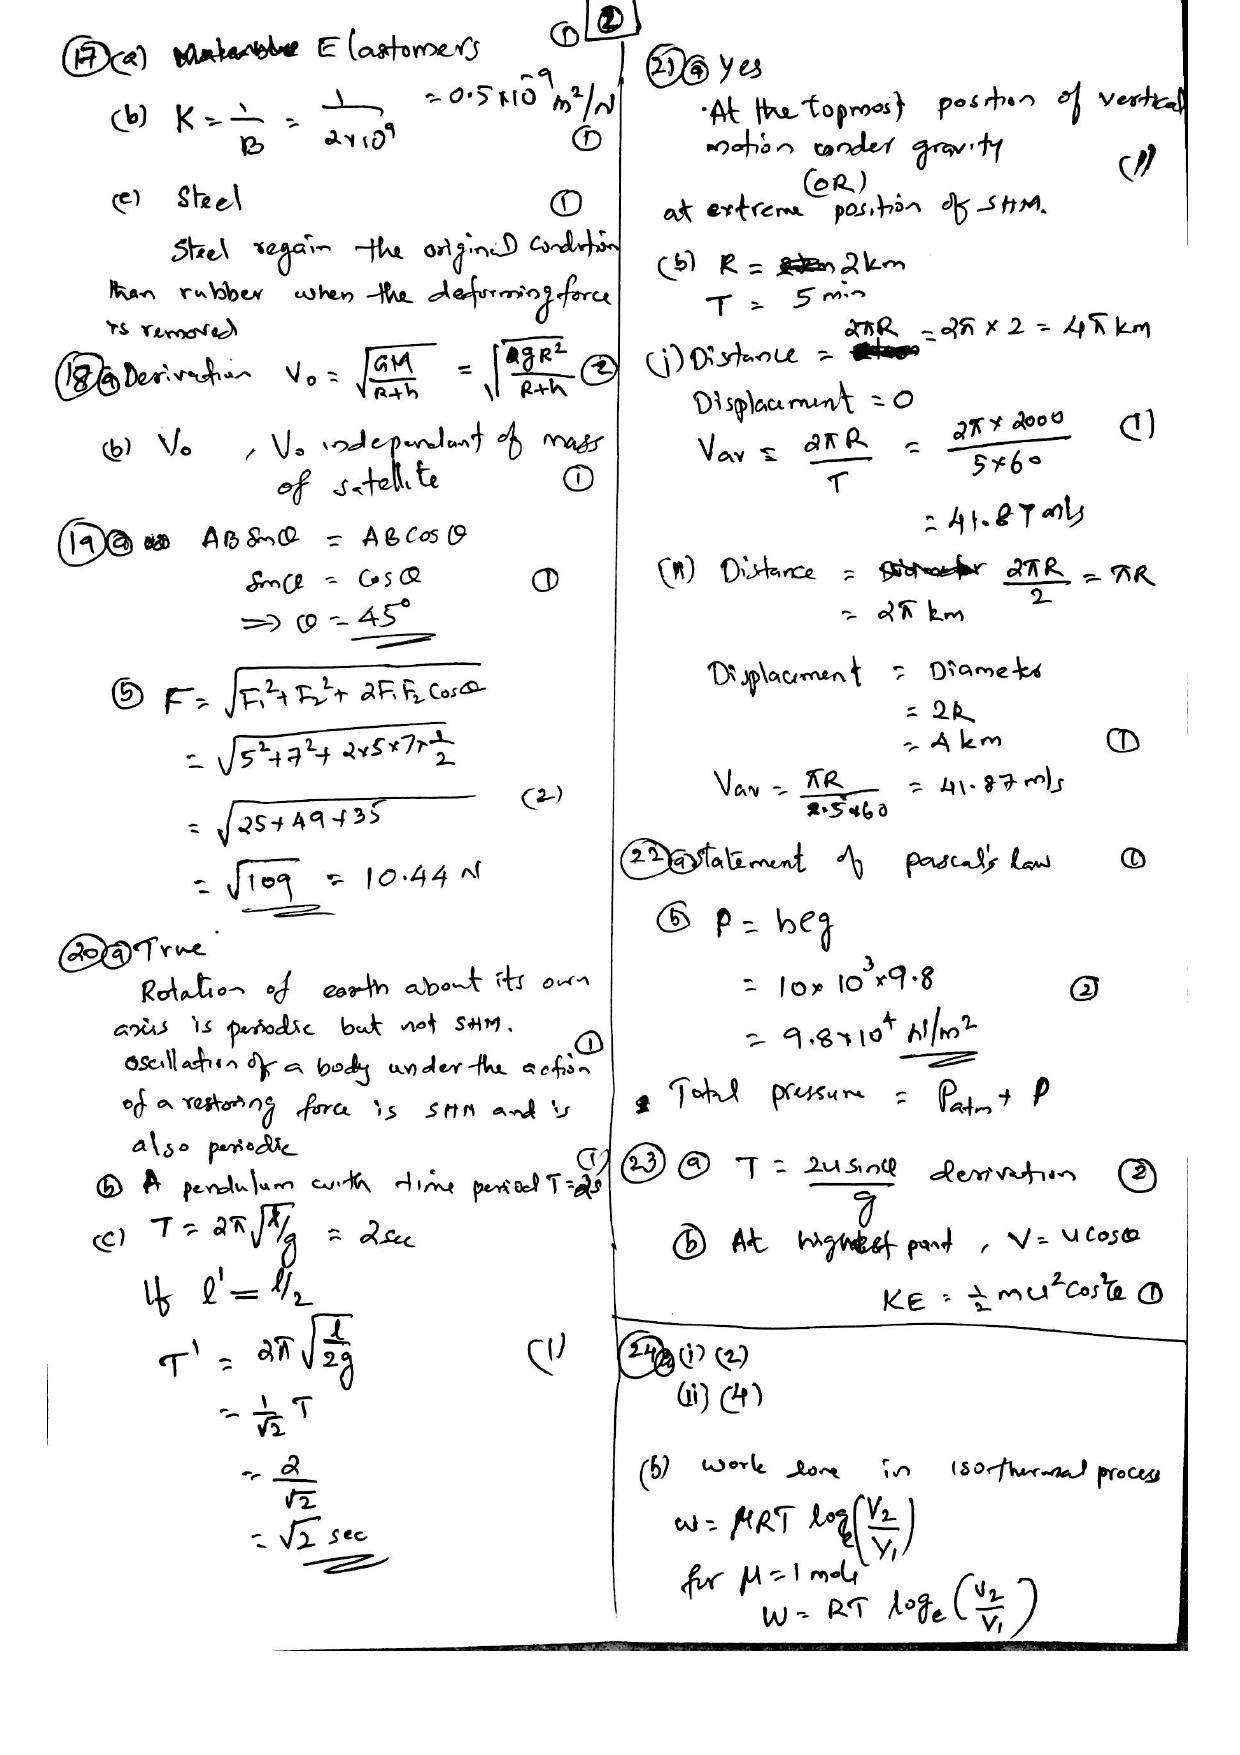 2
17 (a) Elastomers 1
(b) K = 1/B = 1/2×10^9 = 0.5×10^-9 m²/N 1
(c) Steel 1
Steel regain the original condition
than rubber when the deforming force
is removed
18 a Derivation V₀ = √(GM/R+h) = √(gR²/R+h) 2
(b) V₀ , V₀ independant of mass
of satellite 1
19 a AB Sinθ = AB Cos θ
Sinθ = Cosθ 1
⇒ θ = 45°
b F = √(F₁² + F₂² + 2F₁F₂ Cosθ)
= √(5² + 7² + 2×5×7×1/2)
= √(25+49+35) (2)
= √109 = 10.44 N
20 a True
Rotation of earth about its own
axis is periodic but not SHM. 1
oscillation of a body under the action
of a restoring force is SHM and is
also periodic
b A pendulum with time period T=2s (1)
(c) T = 2π√(l/g) = 2sec
If l' = l/2
T' = 2π √(l/2g) (1)
= 1/√2 T
= 2/√2
= √2 sec
21 a Yes
. At the topmost position of vertical
motion under gravity (1)
(OR)
at extreme position of SHM.
(b) R = 2km
T = 5 min
(i) Distance = 2πR = 2π × 2 = 4π km
Displacement = 0
Vav = 2πR/T = 2π×2000/5×60 (1)
= 41.87 m/s
(ii) Distance = 2πR/2 = πR
= 2π km
Displacement = Diameter
= 2R
= 4 km 1
Vav = πR/2.5×60 = 41.87 m/s
22 a Statement of pascal's law 1
b P = hρg
= 10×10³×9.8 2
= 9.8×10⁴ N/m²
Total pressure = Patm + P
23 a T = 2u sinθ/g derivation 2
b At highest point , V = u cosθ
KE = 1/2 mu² cos²θ 1
24 a (i) (2)
(ii) (4)
(b) work done in isothermal process
W = μRT logₑ(V₂/V₁)
for μ = 1 mole
W = RT logₑ(V₂/V₁)